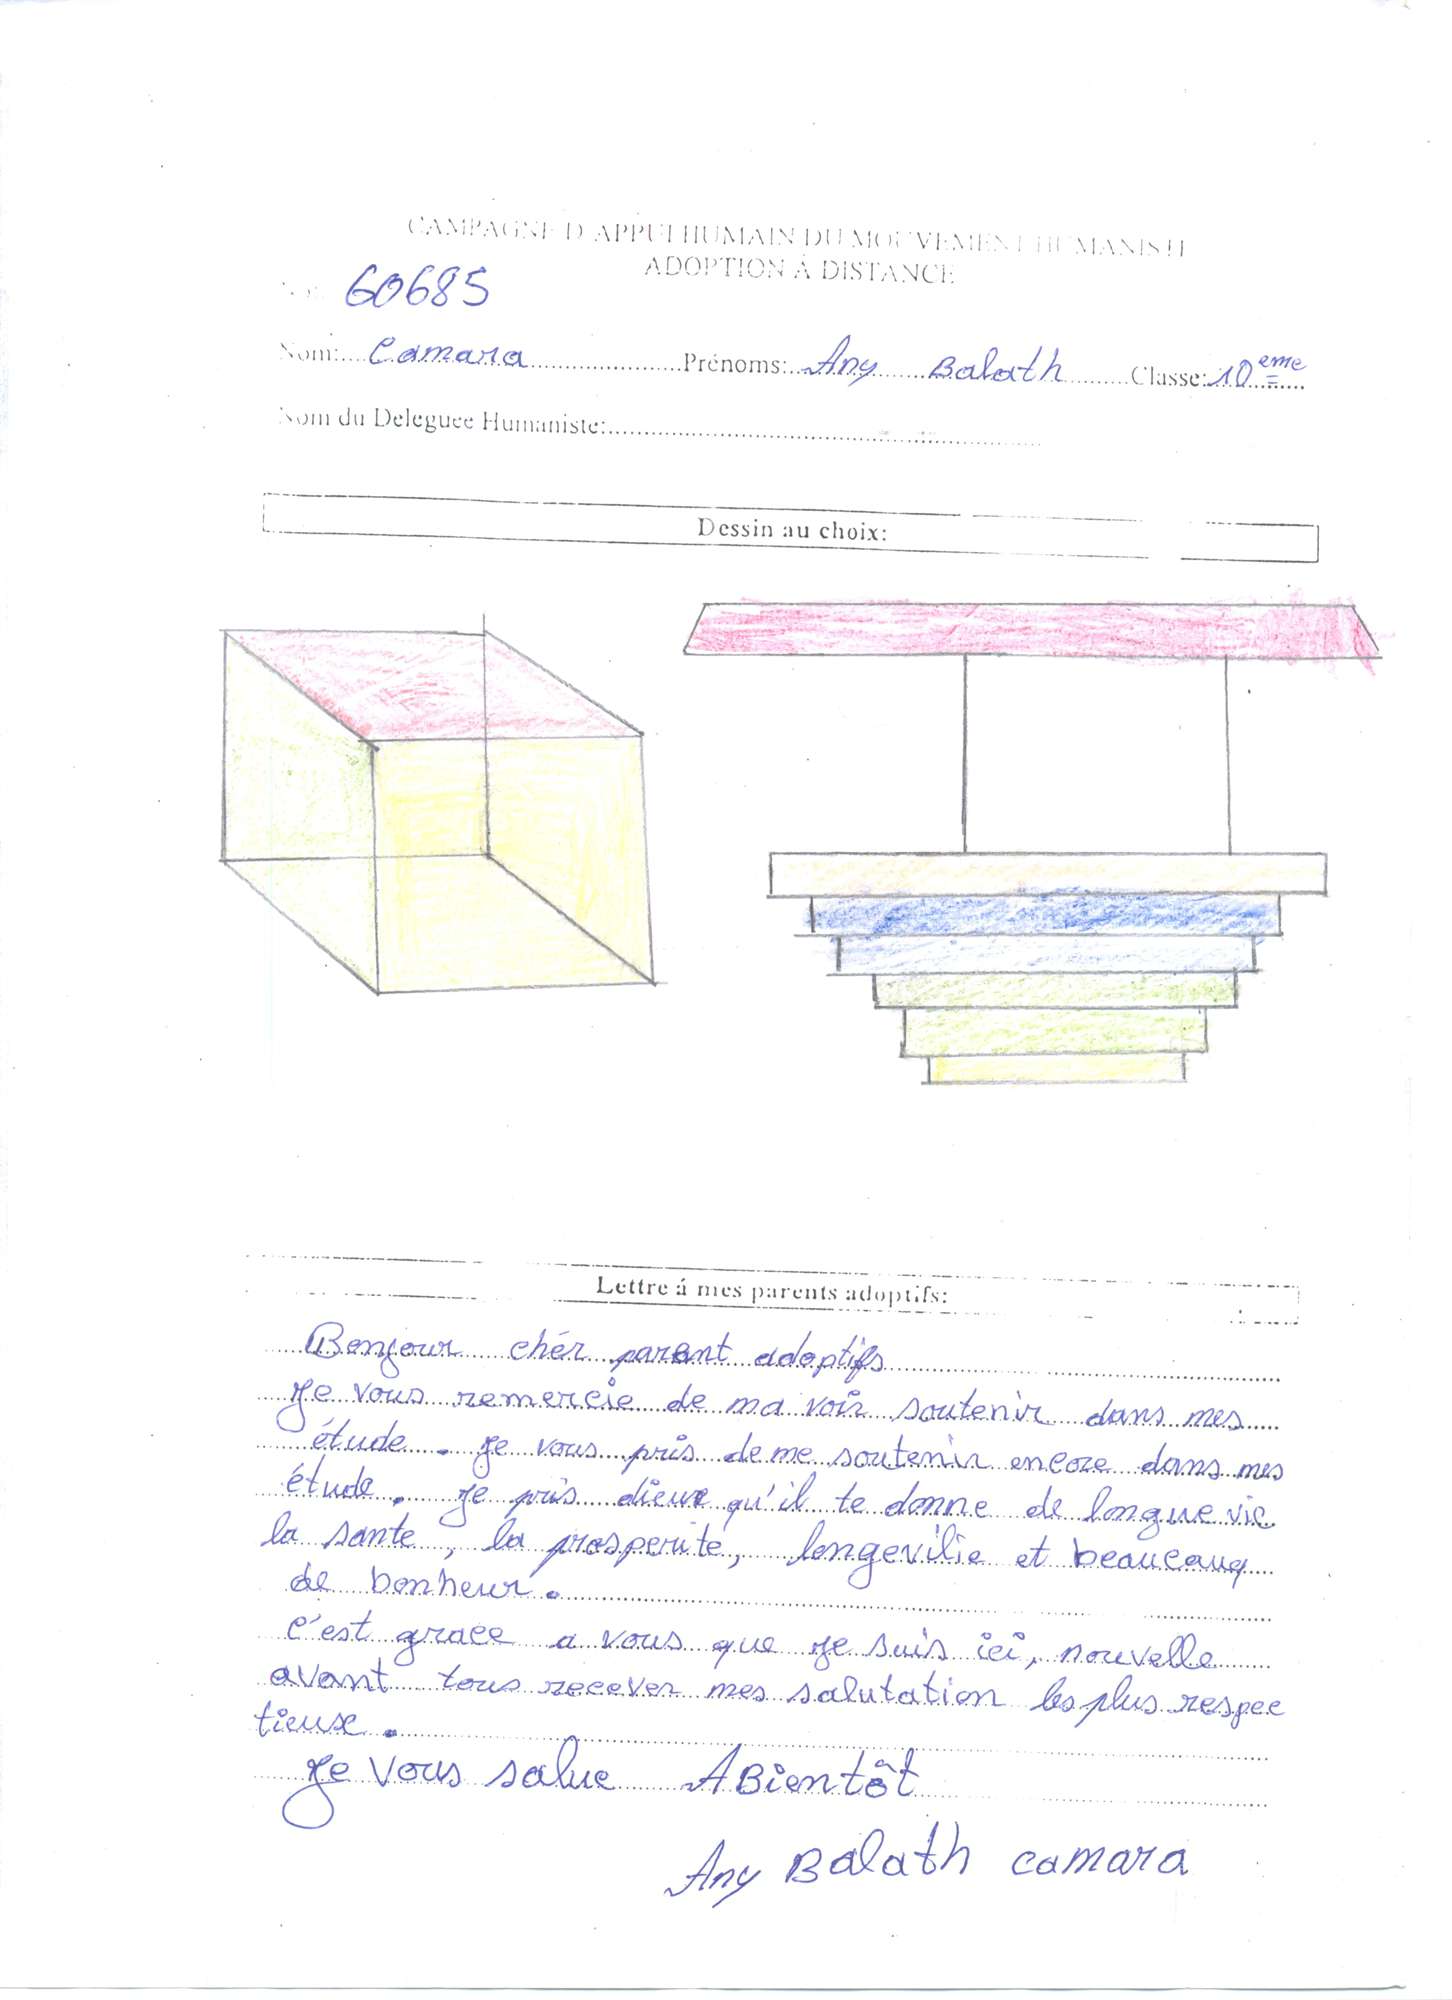 CAMPAGNE D'APPUI HUMAIN DU MOUVEMENT HUMANISTE
ADOPTION Á DISTANCE
60685
Nom: Camara Prénoms: Any Balath Classe: 10eme
Nom du Deleguee Humaniste:
Dessin au choix:
Lettre á mes parents adoptifs:
Bonjour chér parent adoptifs
Je vous remercie de ma voir soutenir dans mes
étude. Je vous pris de me soutenir encore dans mes
étude. Je pris dieux qu'il te donne de longue vie
la sante, la prosperité, longevilie et beaucauq
de bonheur.
c'est grace a vous que je suis ici, nouvelle
avant tous recever mes salutation les plus respec
tieuse.
Je vous salue A Bientôt
Any Balath camara